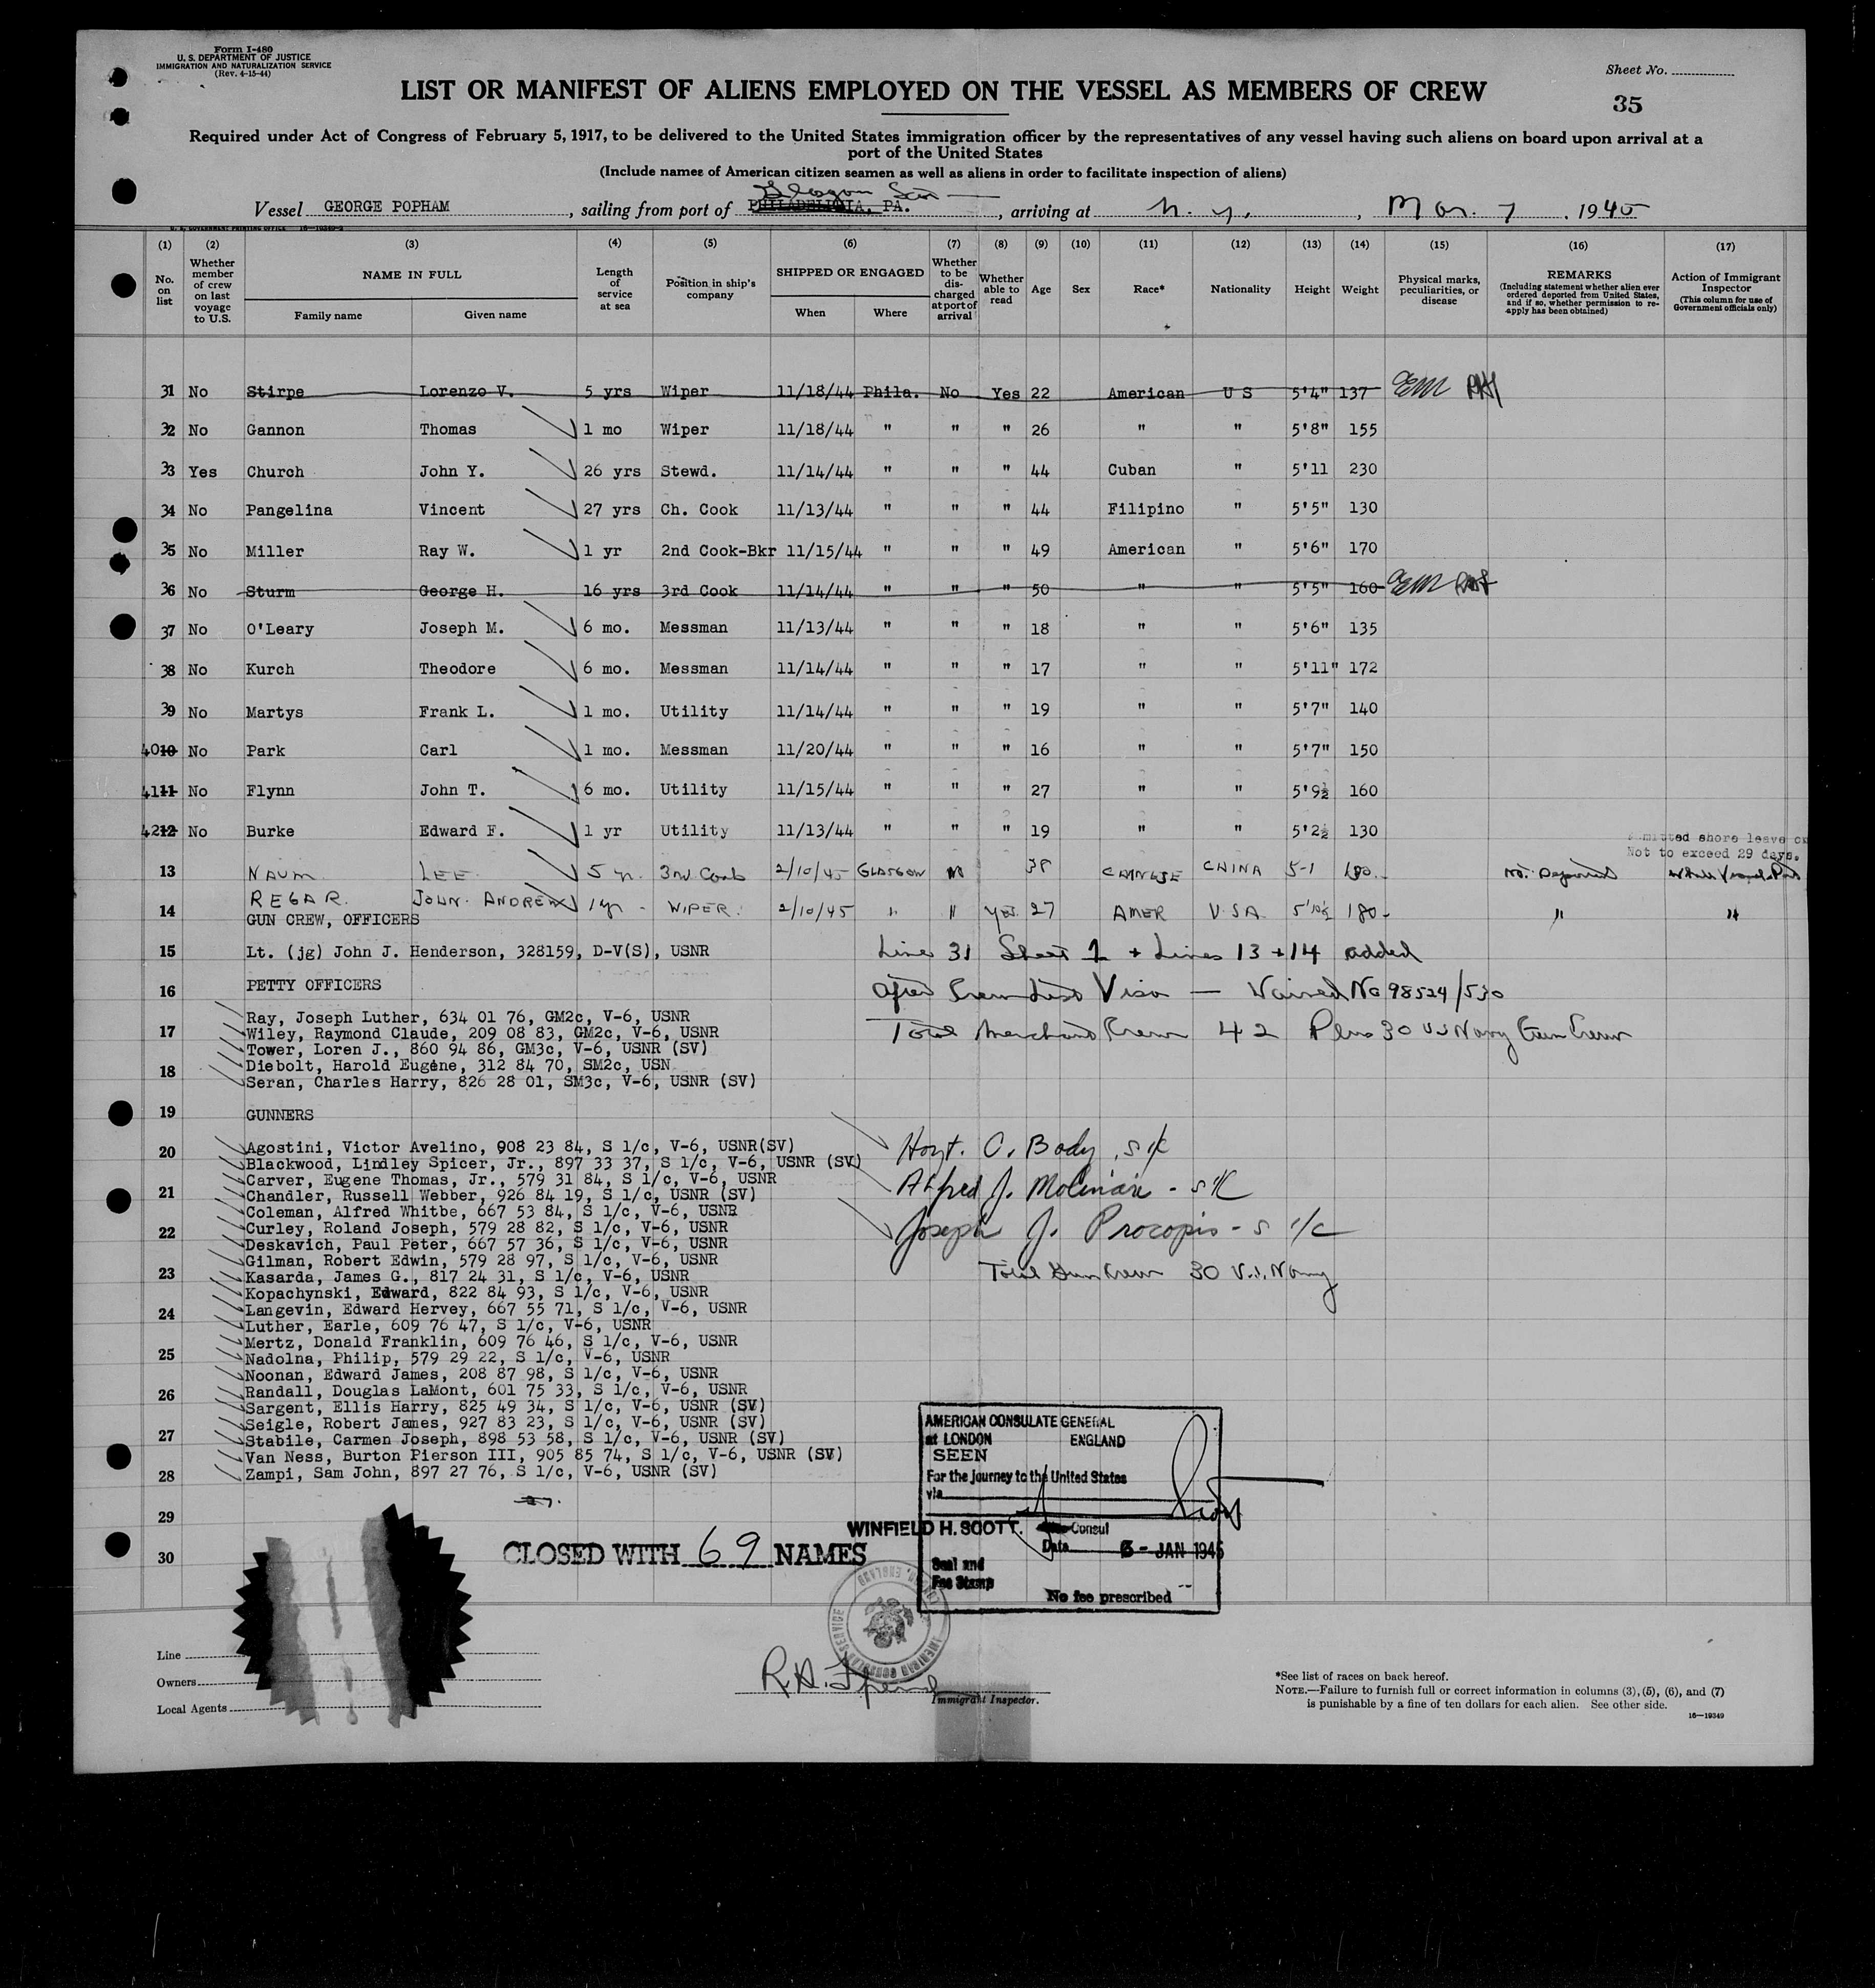 Form I-480
U. S. DEPARTMENT OF JUSTICE
IMMIGRATION AND NATURALIZATION SERVICE
(Rev. 4-15-44)
Sheet No.
35
LIST OR MANIFEST OF ALIENS EMPLOYED ON THE VESSEL AS MEMBERS OF CREW
Required under Act of Congress of February 5, 1917, to be delivered to the United States immigration officer by the representatives of any vessel having such aliens on board upon arrival at a
port of the United States
(Include names of American citizen seamen as well as aliens in order to facilitate inspection of aliens)
Vessel GEORGE POPHAM, sailing from port of PHILADELPHIA, PA. , arriving at N. Y. , Mar. 7 , 1945
(1) (2) (3) (4) (5) (6) (7) (8) (9) (10) (11) (12) (13) (14) (15) (16) (17)
No. on list
Whether member of crew on last voyage to U.S.
NAME IN FULL
Family name
Given name
Length of service at sea
Position in ship's company
SHIPPED OR ENGAGED
When
Where
Whether to be discharged at port of arrival
Whether able to read
Age
Sex
Race*
Nationality
Height
Weight
Physical marks, peculiarities, or disease
REMARKS
(Including statement whether alien ever ordered deported from United States, and if so, whether permission to re-apply has been obtained)
Action of Immigrant Inspector
(This column for use of Government officials only)
31 No Stirpe Lorenzo V. 5 yrs Wiper 11/18/44 Phila. No Yes 22 American U S 5'4" 137
32 No Gannon Thomas 1 mo Wiper 11/18/44 " " " 26 " " 5'8" 155
33 Yes Church John Y. 26 yrs Stewd. 11/14/44 " " " 44 Cuban " 5'11 230
34 No Pangelina Vincent 27 yrs Ch. Cook 11/13/44 " " " 44 Filipino " 5'5" 130
35 No Miller Ray W. 1 yr 2nd Cook-Bkr 11/15/44 " " " 49 American " 5'6" 170
36 No Sturm George H. 16 yrs 3rd Cook 11/14/44 " " " 50 " " 5'5" 160
37 No O'Leary Joseph M. 6 mo. Messman 11/13/44 " " " 18 " " 5'6" 135
38 No Kurch Theodore 6 mo. Messman 11/14/44 " " " 17 " " 5'11" 172
39 No Martys Frank L. 1 mo. Utility 11/14/44 " " " 19 " " 5'7" 140
40 10 No Park Carl 1 mo. Messman 11/20/44 " " " 16 " " 5'7" 150
41 11 No Flynn John T. 6 mo. Utility 11/15/44 " " " 27 " " 5'9½ 160
42 12 No Burke Edward F. 1 yr Utility 11/13/44 " " " 19 " " 5'2½ 130
shore leave
Not to exceed 29 days.
13 NAUM LEE 5 yr. 3rd Cook 2/10/45 GLASGOW 38 CHINESE CHINA 5-1 180 No. Deported
14 REGAR JOHN ANDREW 1 yr - WIPER. 2/10/45 " " yes 27 AMER U.S.A. 5'10½ 180 - " "
GUN CREW, OFFICERS
15 Lt. (jg) John J. Henderson, 328159, D-V(S), USNR
Line 31 Sheet 1 + Lines 13 + 14 added
16 PETTY OFFICERS
after Crew List Visa — Waived No 98524/530
Ray, Joseph Luther, 634 01 76, GM2c, V-6, USNR
17 Wiley, Raymond Claude, 209 08 83, GM2c, V-6, USNR
Total Merchant Crew 42 Plus 30 U.S. Navy Gun Crew
Tower, Loren J., 860 94 86, GM3c, V-6, USNR (SV)
18 Diebolt, Harold Eugene, 312 84 70, SM2c, USN
Seran, Charles Harry, 826 28 01, SM3c, V-6, USNR (SV)
19 GUNNERS
20 Agostini, Victor Avelino, 908 23 84, S 1/c, V-6, USNR(SV)
Hoyt. O. Body, S 1/c
Blackwood, Lindley Spicer, Jr., 897 33 37, S 1/c, V-6, USNR (SV)
Carver, Eugene Thomas, Jr., 579 31 84, S 1/c, V-6, USNR
Alfred J. Molinari - S 1/C
21 Chandler, Russell Webber, 926 84 19, S 1/c, USNR (SV)
Coleman, Alfred Whitbe, 667 53 84, S 1/c, V-6, USNR
22 Curley, Roland Joseph, 579 28 82, S 1/c, V-6, USNR
Joseph J. Procopio - S 1/c
Deskavich, Paul Peter, 667 57 36, S 1/c, V-6, USNR
Gilman, Robert Edwin, 579 28 97, S 1/c, V-6, USNR
23 Kasarda, James G., 817 24 31, S 1/c, V-6, USNR
Total Gun Crew 30 U.S. Navy
Kopachynski, Edward, 822 84 93, S 1/c, V-6, USNR
24 Langevin, Edward Hervey, 667 55 71, S 1/c, V-6, USNR
Luther, Earle, 609 76 47, S 1/c, V-6, USNR
Mertz, Donald Franklin, 609 76 46, S 1/c, V-6, USNR
25 Nadolna, Philip, 579 29 22, S 1/c, V-6, USNR
Noonan, Edward James, 208 87 98, S 1/c, V-6, USNR
26 Randall, Douglas LaMont, 601 75 33, S 1/c, V-6, USNR
Sargent, Ellis Harry, 825 49 34, S 1/c, V-6, USNR (SV)
Seigle, Robert James, 927 83 23, S 1/c, V-6, USNR (SV)
27 Stabile, Carmen Joseph, 898 53 58, S 1/c, V-6, USNR (SV)
Van Ness, Burton Pierson III, 905 85 74, S 1/c, V-6, USNR (SV)
28 Zampi, Sam John, 897 27 76, S 1/c, V-6, USNR (SV)
29
30
AMERICAN CONSULATE GENERAL
at LONDON ENGLAND
SEEN
For the journey to the United States
via
WINFIELD H. SCOTT. Consul
Date 6 - JAN 1945
Seal and
Fee Stamp
No fee prescribed
CLOSED WITH 69 NAMES
Line
Owners
Local Agents
Immigrant Inspector.
*See list of races on back hereof.
NOTE.—Failure to furnish full or correct information in columns (3), (5), (6), and (7)
is punishable by a fine of ten dollars for each alien. See other side.
16—19349